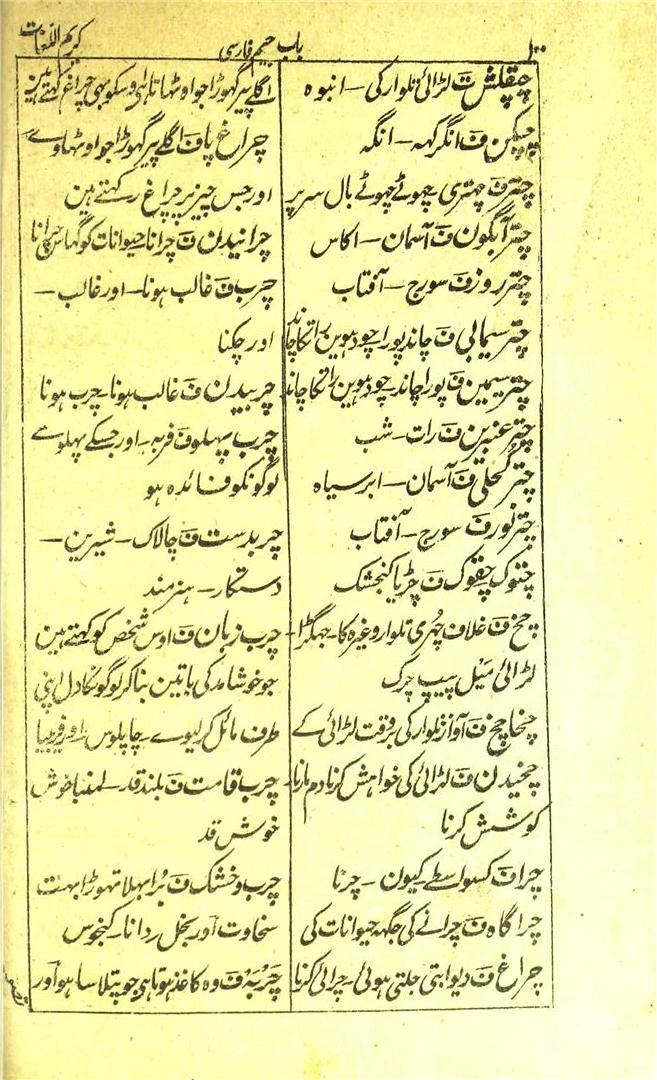 ۱۰۰
باب جیم فارسی
کریم اللغات
چپقلش ت لڑائی تلوار کی – انبوہ
چکن ف انگرکہہ – انگہ
چتر ف چہتری – چہوٹے چہوٹے بال سر پر
چتر آبگون ف آسمان – اکاس
چتر روز ف سورج – آفتاب
چتر سیمابی ف چاند پورا چودہوین رات کا چاند
چتر سیمین ف پورا چاند – چودہوین رات کا چاند
چتر عنبرین ف رات – شب
چتر کحلی ف آسمان – ابر سیاہ
چتر نور ف سورج – آفتاب
چتوک چقوک ف چڑیا کنجشک
چخ ف غلاف چہری تلوار وغیرہ کا – جہگڑا –
لڑائی میل پیپ چرک
چخاچخ ف آواز تلوار کی بوقت لڑائی کے
چخیدن ف لڑائی کی خواہش کرنا دم مارنا –
کوشش کرنا
چرا ف کسواسطے کیون – چرنا
چراگاہ ف چرانے کی جگہہ حیوانات کی
چراغ ف دیوا بتی جلتی ہوئی – چرائی کرنا
اگلے پیر گہوڑا جو اوٹہاتا ہی وسکو بہی چراغ کہتے ہین
چراغ پا ف اگلے پیر گہوڑا جو اوٹہاوے
اور جس چیز پر چراغ رکہتے ہین
چرانیدن ف چرانا حیوانات کو گہاس چرانا
چرب ف غالب ہونا – اور غالب –
اور چکنا
چربیدن ف غالب ہونا – چرب ہونا
چرب پہلو ف فربہ – اور جسکے پہلو سے
لوگونکو فائدہ ہو
چربدست ف چالاک – شیرین –
دستکار – ہنرمند
چرب زبان ف اوس شخص کو کہتے ہین
جو خوشامد کی باتین بناکر لوگونکا دل اپنی
طرف مائل کرلیوے – چاپلوس اور فریبیا
چرب قامت ف بلند قد – لمنبا خوش
خوش قد
چرب و خشک ف برا بہلا تہوڑا بہت
سخاوت اور بخل ردانا – کنجوس
چربہ ف وہ کاغذ ہوتا ہی جو پتلا سا ہو اور